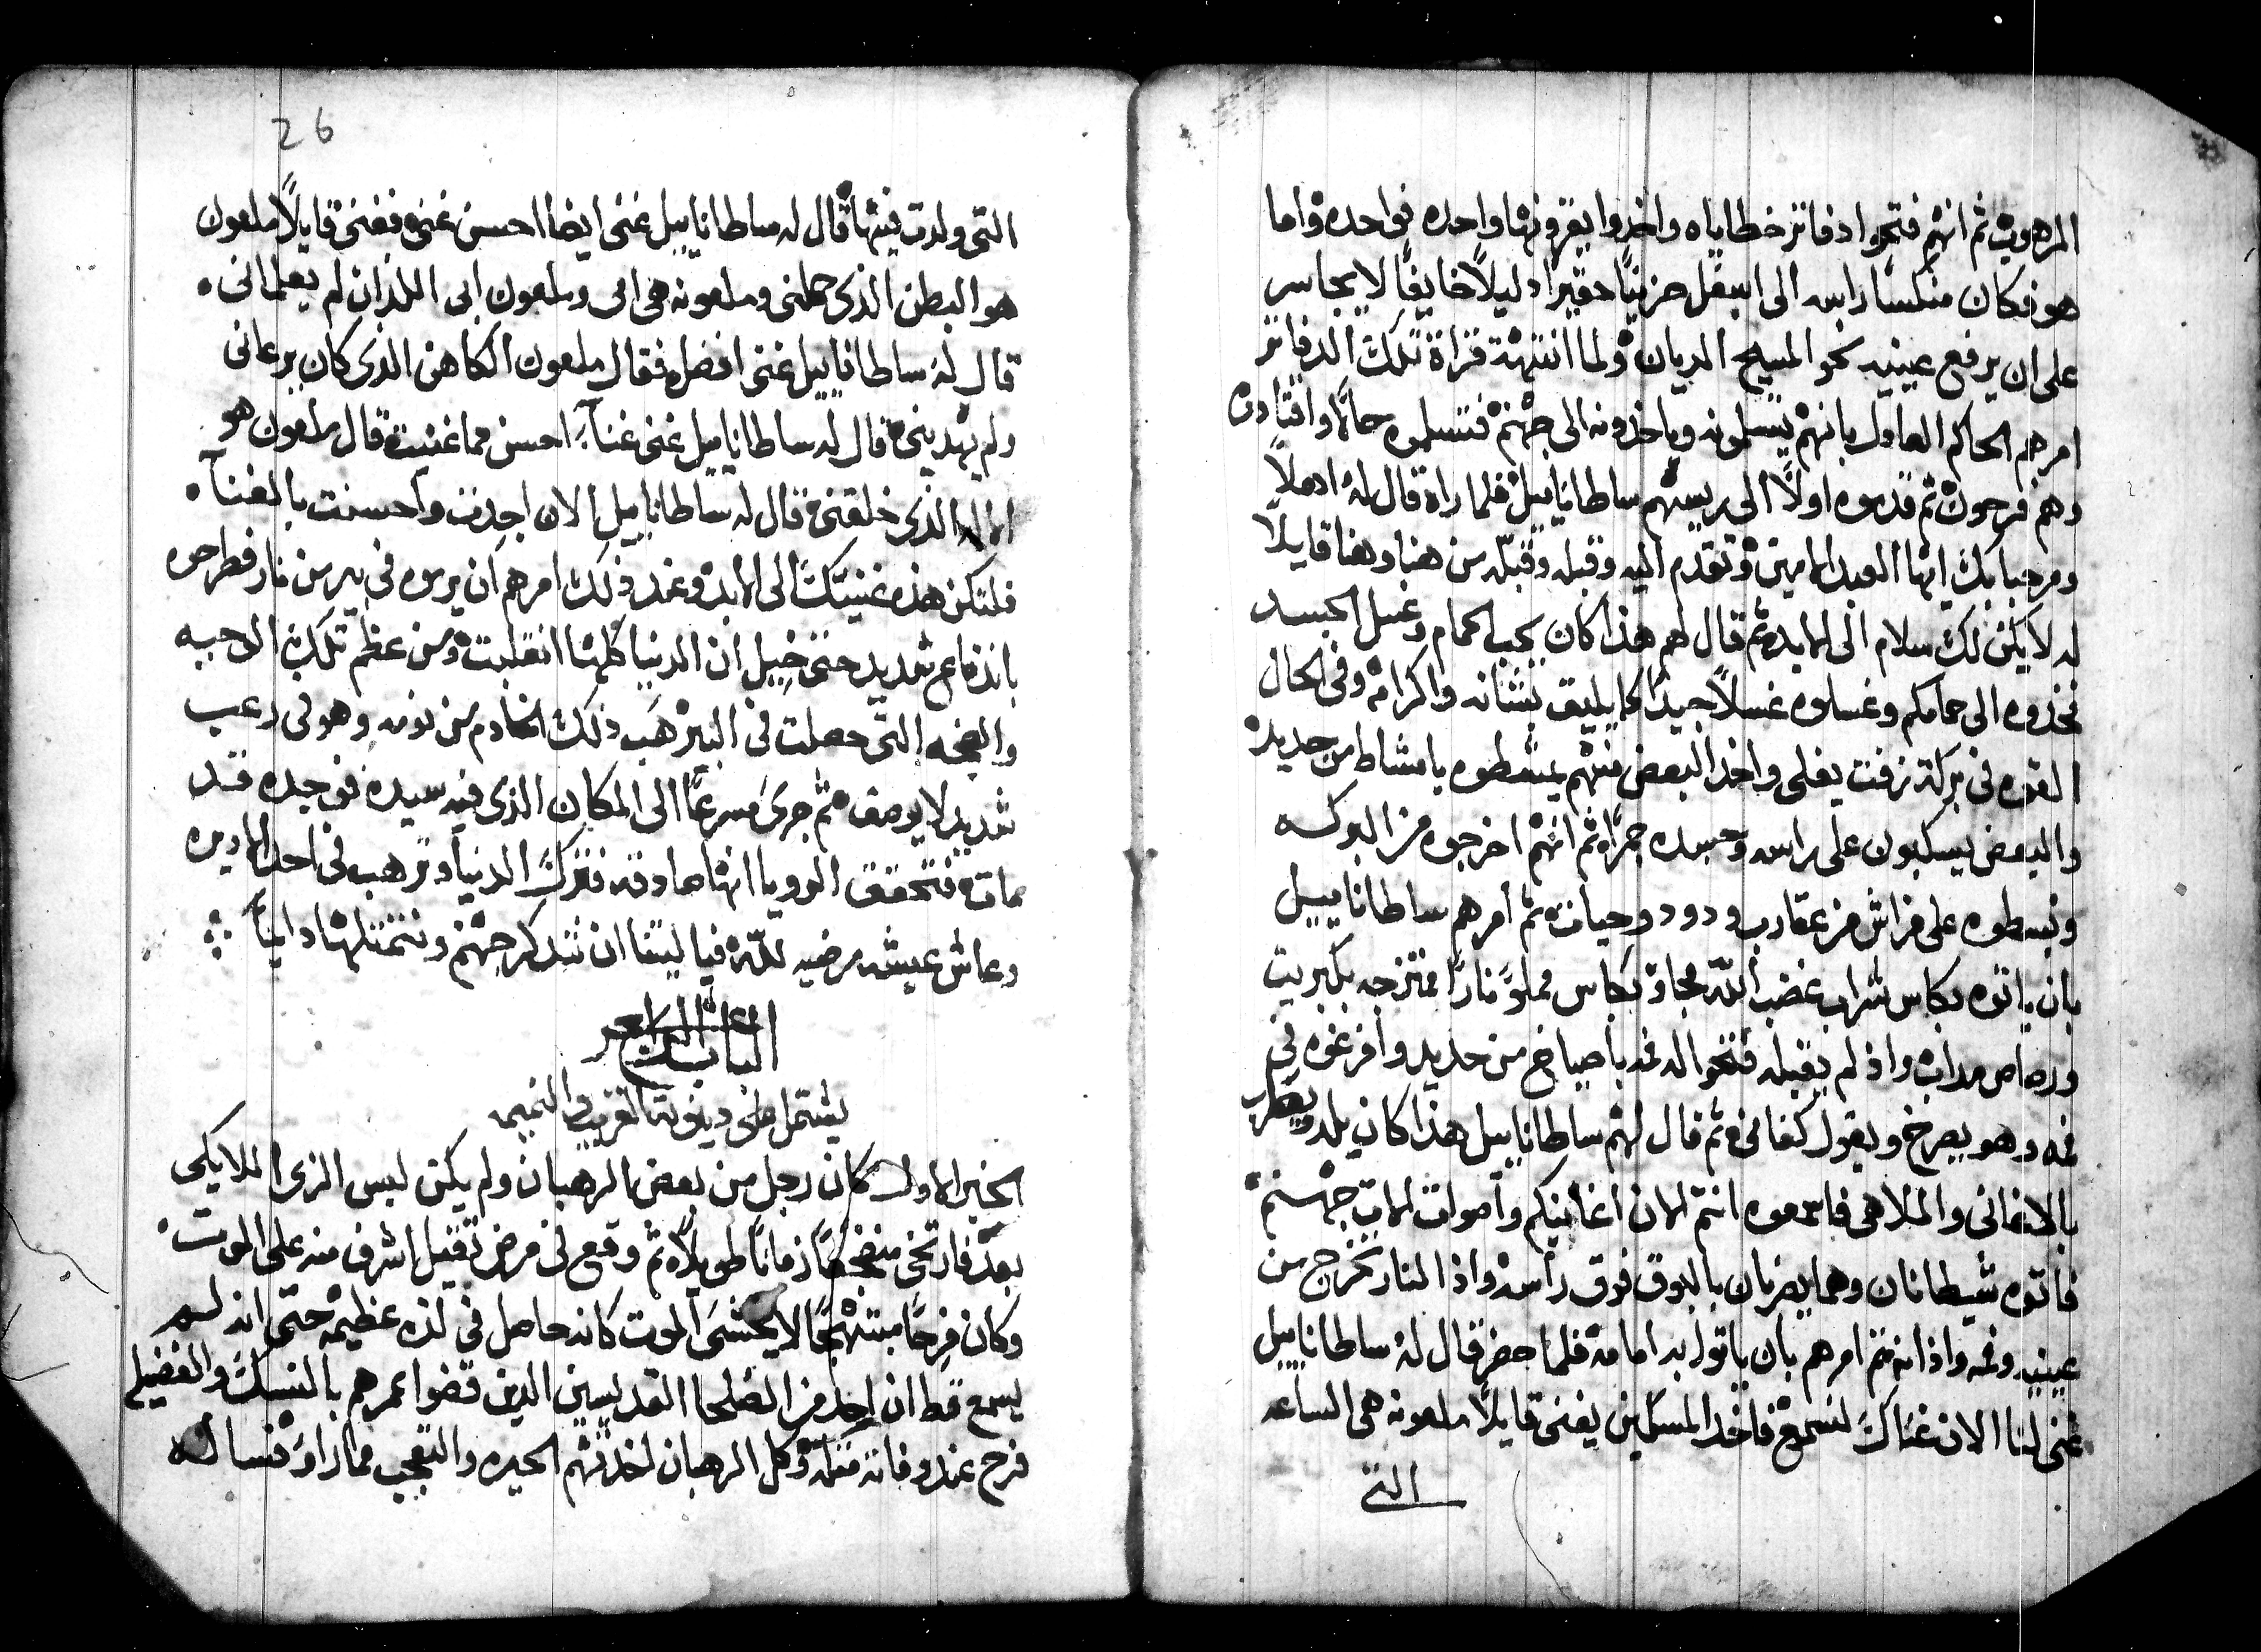 المرهوب ثم انهم فتحوا دفاتر خطاياه واخدوا يقرونها واحده فواحده واما
هو فكان منكسًا راسه الى اسفل حزينًا حقيرا دليلاً خايفًا لا يجاسر
على ان يرفع عينيه نحو المسيح الديان ولما انتهة قراة تلك الدفاتر
امرهم الحاكم العادل بانهم يتسلمونه وياخدونه الى جهنم فتسلموه حالًا واقتادوه
وهم فرحون ثم قدموه اولًا الى ريسهم ساطانابيل فلما راة قال لهُ اهلاً
ومرحبا بك ايها العبد الامين وتقدم اليه وقبله وقبّله من هنا وهنا قايلًا
له لا يكن لك سلام الى الابد ثم قال لهم هذا كان يحب الحمام وغسل الجسد
فخذوه الى حمامكم وغسلوه غسلاً جيدًا كما يليق بشانه واكرامه وفى الحال
القوه فى بركة زفت يغلى واخد البعض منهم يمشطوه بامشاط من حديد
والبعض يسكبون على راسه وجسده جمرًا ثم انهم اخرجوه من البركه
وبسطوه على فراش من عقارب ودود وحيات ثم امرهم ساطانابيل
بان ياتوه بكاس شراب غضب اللّه فجاوً بكاس مملوً نارًا ممتزجه بكبريت
ورصاص مداب واذ لم يقبله فتحوا له فمه باصياخ من حديد وافرغوه فى
فمه وهو يصرخ ويقول كفانى ثم قال لهم ساطانابيل هذا كان يلد ويطرب
بالاغانى والملاهى فاسمعوه انتم الان اغانيكم واصوات الات جهنم
فاتوه شيطانان وهما يضربان بالبوق فوق راسه واذا النار تخرج من
عينيه وفمه واذانه ثم امرهم بان ياتوا به امامه فلما حضر قال لهُ ساطانابيل
غنى لنا الان غناك لنسمع فاخد المسكين يغنى قايلًا ملعونه هى الساعه
التى
26
التى ولدت فيها قال له ساطانابيل غنى ايضا احسن غنوه فغنى قايلًا ملعون
هو البطن الذى حملنى وملعونه هى امى وملعون ابى اللدان لم يعلمانى
قال لهُ ساطانابيل غنى افضل فقال ملعون الكاهن الذى كان يرعانى
ولم يهدينى قال له ساطانابيل غنى غناً احسن مما غنيت قال ملعون هو
الذى خلقنى قال له ساطانابيل الان اجدت واحسنت بالغنآ
فلتكن هذه غنيتك الى الابد وعند ذلك امرهم ان يرموه فى بير من نار فطرحوه
باندفاع شديد حتى خيل ان الدنيا كلها انقلبت ومن عظم تلك
والضجه التى حصلت فى البير هَب ذلك الخادم من نومه وهو فى رعب
شديد لا يوصف ثم جرىَ مسرعًا الى المكان الذى فيه سيده فوجده قد
مات فتحقق الرويا انها صادقه فترك الدنيا وترهب فى احد الاديره
وعاش عيشه مرضيه للّه فيا ليتنا ان نتدكر جهنم ونتمثلها دايمًا
الباب الرابع عشر
يشتمل على دينونة القريب والنميمه
الخبر الاول كان رجل من بعض الرهبان ولم يكن لبس الزى الملايكى
بعد فارتخى متضجعًا زمانًا طويلًا ثم وقع فى مرض ثقيل اشرف منه على الموت
وكان فرحًا مبتهجًا لا يخشىَ الموت كانه حاصل فى لذه عظيمه حتى انه لم
يسمع قط ان احد من الصُلحا القديسين الدين قضوا عمرهم بالنسك والفضيله
فرح عند وفاته مثله وكل الرهبان اخدتهم الحيره والتعجب مما راوً فسالوه